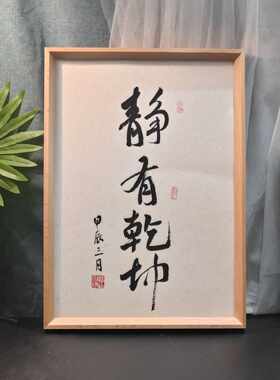 静有乾坤
甲辰三月